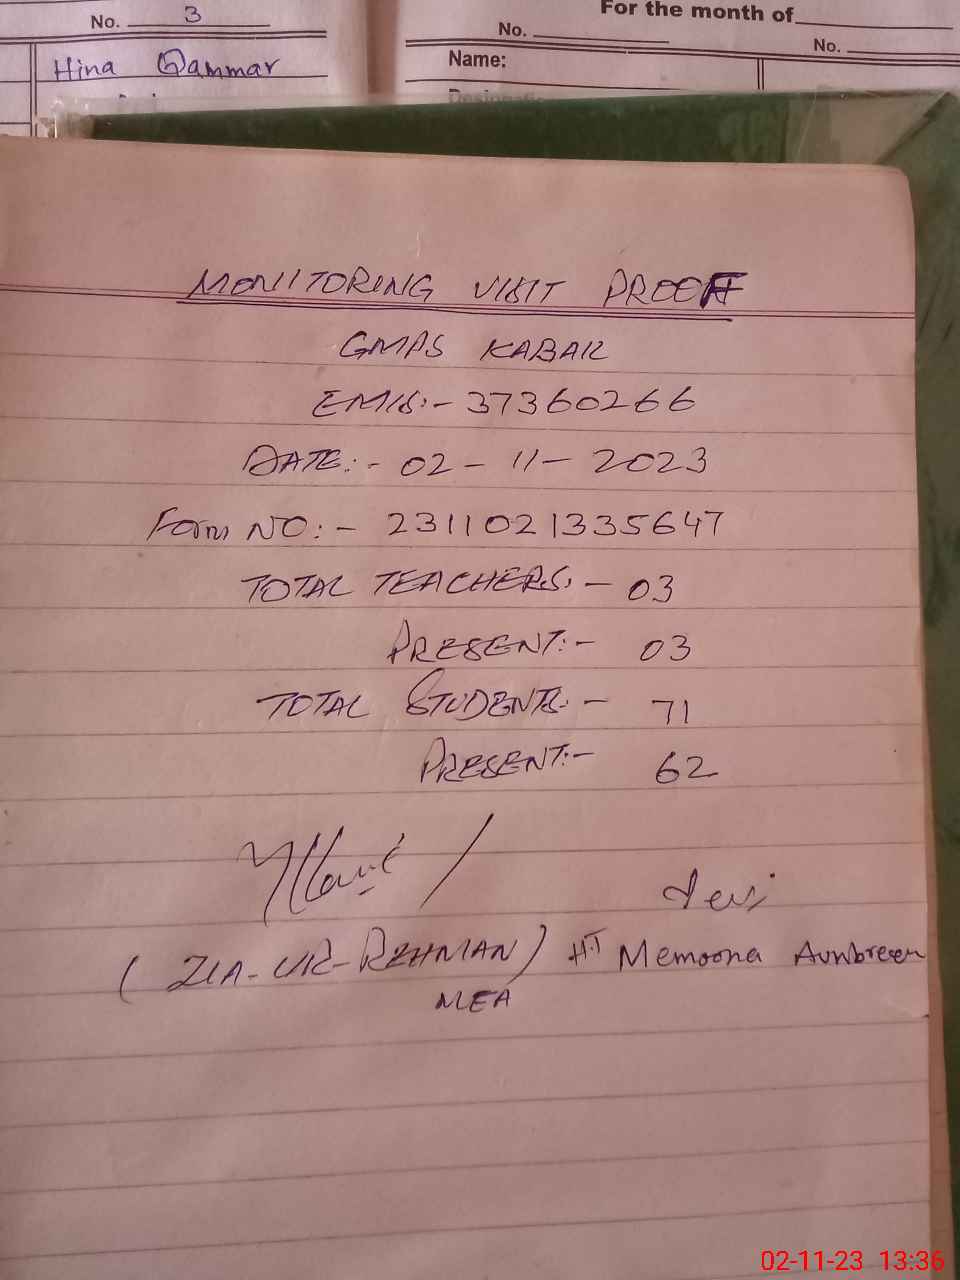 No. 3
For the month of
No.
No.
Hina Qammar
Name:
MONITORING VISIT PROOF
GMPS KABAR
EMIS:- 37360266
DATE:- 02-11-2023
Form NO:- 2311021335647
TOTAL TEACHERS:- 03
PRESENT:- 03
TOTAL STUDENTS:- 71
PRESENT:- 62
(ZIA-UR-REHMAN) H.T Memoona
MEA
02-11-23 13:36